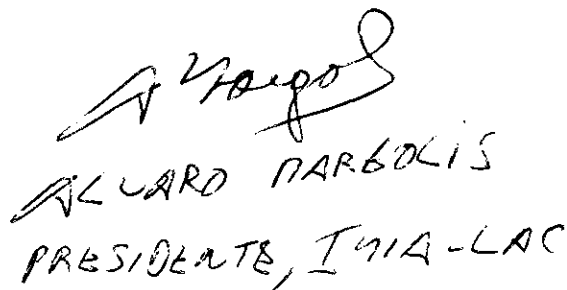 A Margol
ALVARO MARGOLIS
PRESIDENTE, IMIA-LAC